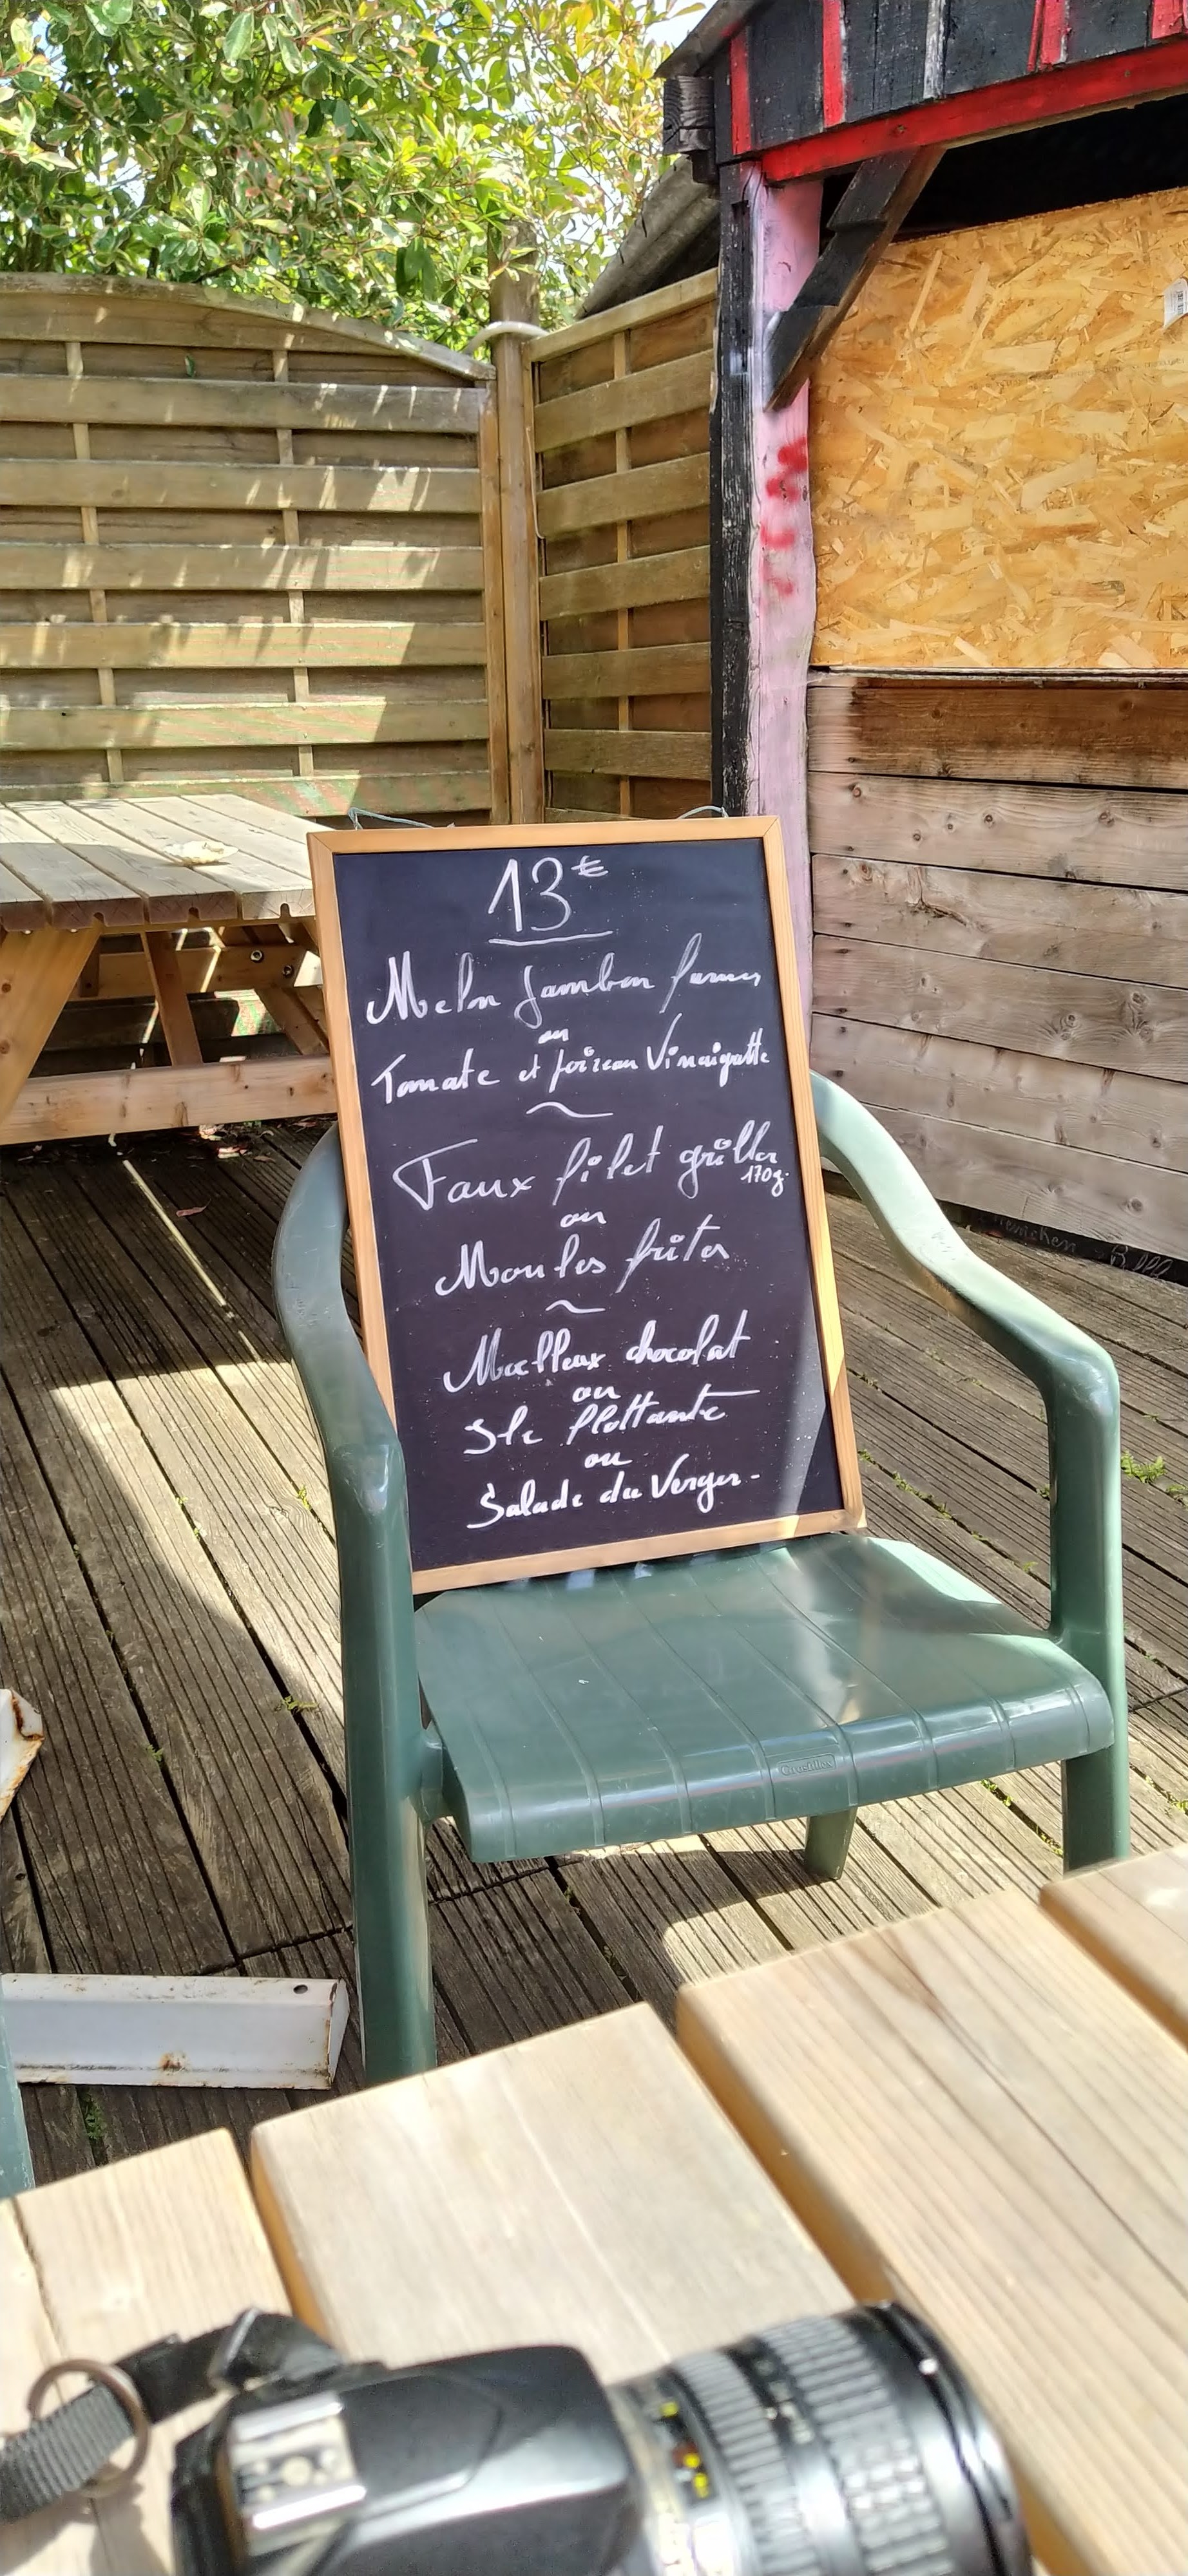 13€
Melon Jambon fumé
ou
Tomate et poireau Vinaigrette
Faux filet griller
170g.
ou
Moules frites
Moelleux chocolat
ou
Ile flottante
ou
Salade du Verger.
Grosfillex